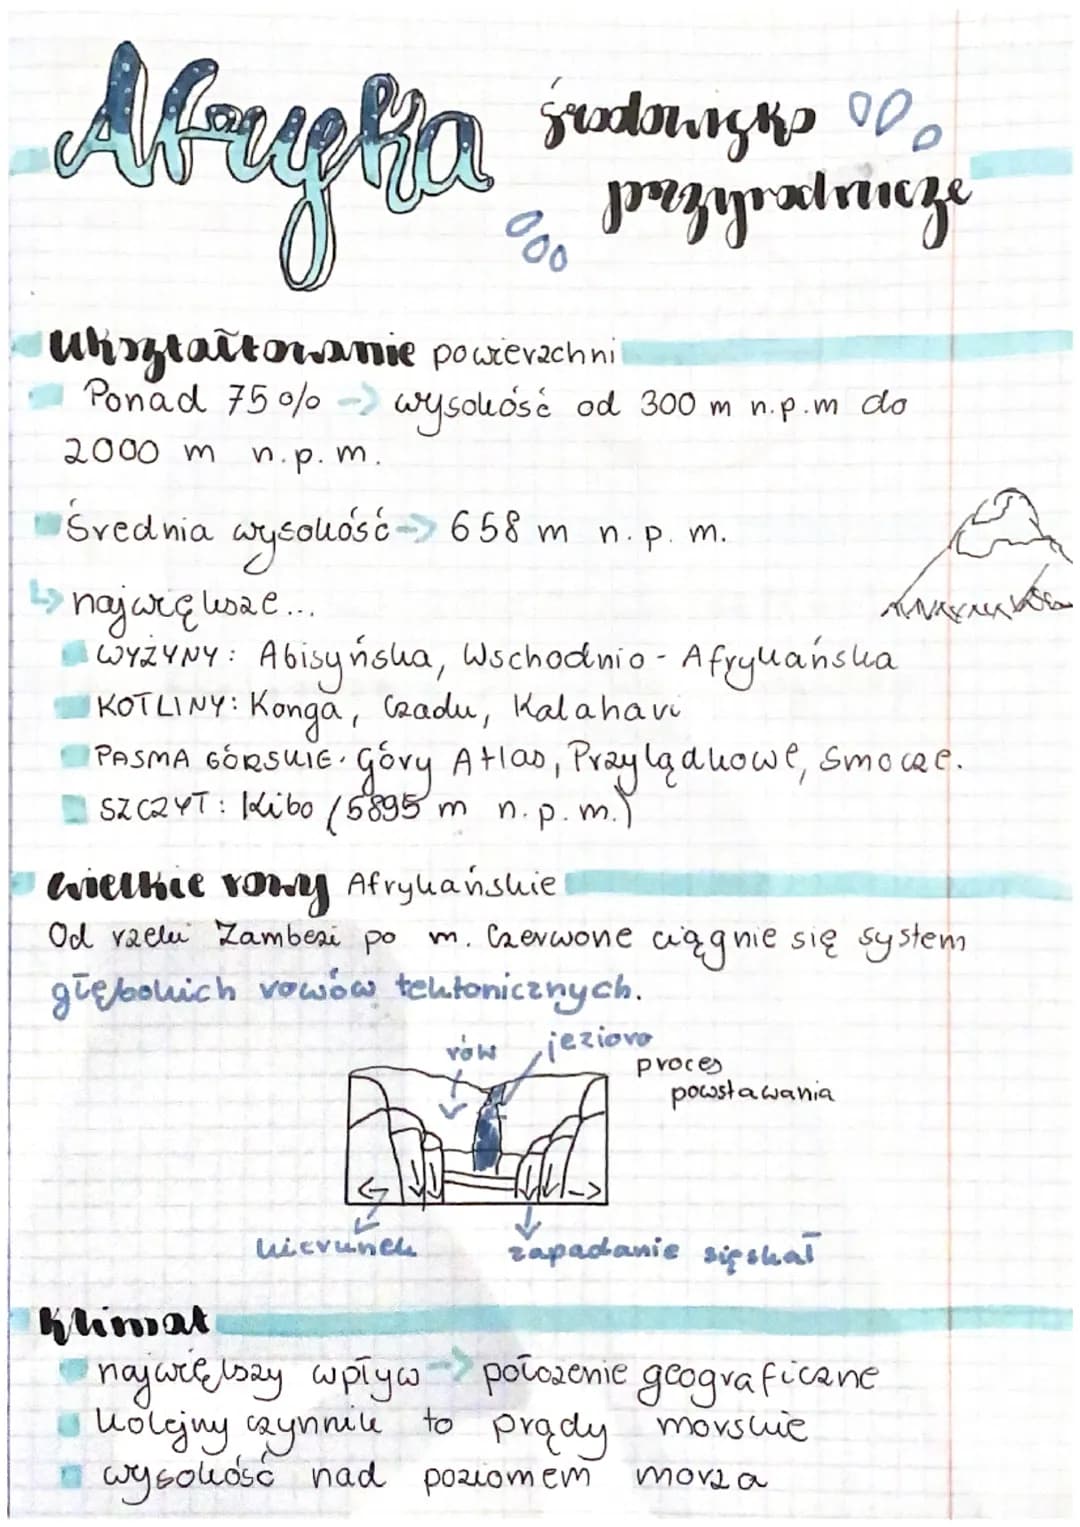 Afryka środowisko
przyrodnicze
Ukształtowanie powierzchni
Ponad 75% -> wysokość od 300 m n.p.m do
2000 m n.p.m.
Średnia wysokość -> 658 m n.p.m.
↳ największe...
WYŻYNY: Abisyńska, Wschodnio - Afrykańska
KOTLINY: Konga, Czadu, Kalahari
PASMA GÓRSKIE: Góry Atlas, Przylądkowe, Smocze.
SZCZYT: Kibo (5895 m n.p.m.)
Wielkie rowy Afrykańskie
Od rzeki Zambezi po m. Czerwone ciągnie się system
głębokich rowów tektonicznych.
rów jezioro
proces
powstawania
kierunek zapadanie się skał
Klimat
największy wpływ -> położenie geograficzne
Kolejny czynnik to prądy morskie
wysokość nad poziomem morza